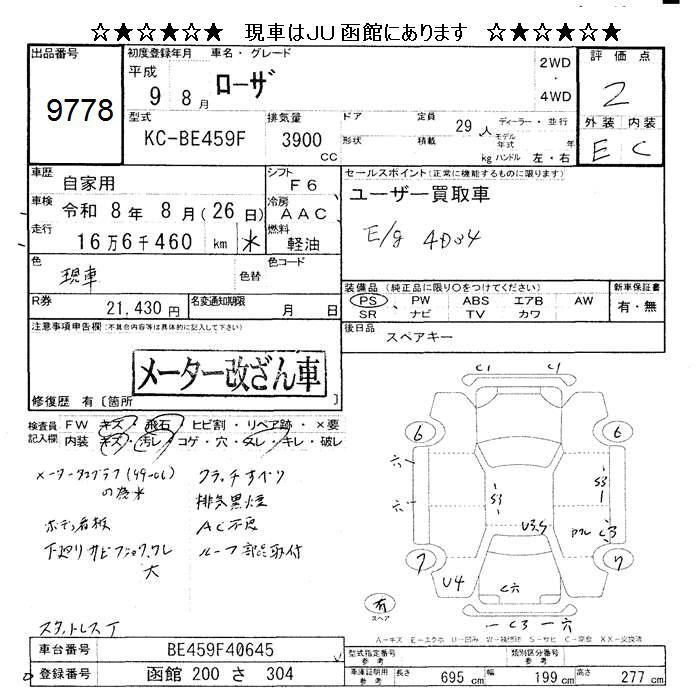 ☆★☆★☆★ 現車はJU函館にあります ☆★☆★☆★
出品番号
9778
初度登録年月 車名・グレード
平成 9 8月
ローザ
2WD
・
4WD
評価点
2
外装 内装
E C
型式
KC-BE459F
排気量
3900 cc
ドア 定員 29人 ディーラー・並行
形状 積載 kg モデル年式 年
ハンドル 左・右
車歴 自家用
シフト F6
車検 令和 8年 8月(26日)
冷房 AAC
走行 16万6千460 km ※
燃料 軽油
色 現車
色替
色コード
R券 21,430円
名変通知期限 月 日
セールスポイント(正常に機能するものに限ります)
ユーザー買取車
E/g 4D34
装備品(純正品に限り○をつけてください)
PS、PW ABS エアB AW
SR ナビ TV カワ
新車保証書
有・無
後日品 スペアキー
注意事項申告欄(不具合内容等は具体的に記入して下さい)
メーター改ざん車
修復歴 有〔箇所 〕
検査員記入欄
FW キズ・飛石・ヒビ割・リペア跡・×要
内装 キズ・汚レ・コゲ・穴・スレ・キレ・破レ
メータータコグラフ(49-06)
の為※
ボデー看板
下廻りサビフショククレ
大
クラッチすべり
排気黒煙
AC不良
ルーフ部品取付
スタットレスT
C1 C1
6 6
六
六
S3
S3
U3.4
アクル C3
7 7
U4
C六
有
スペア
C3 六
A−キズ E−エクボ U−凹み W−補修跡 S−サビ C−腐食 XX−交換済
車台番号 BE459F40645
登録番号 函館 200 さ 304
型式指定番号
参考
類別区分番号
参考
車庫証明用
参考
長さ 695 cm 幅 199 cm 高さ 277 cm